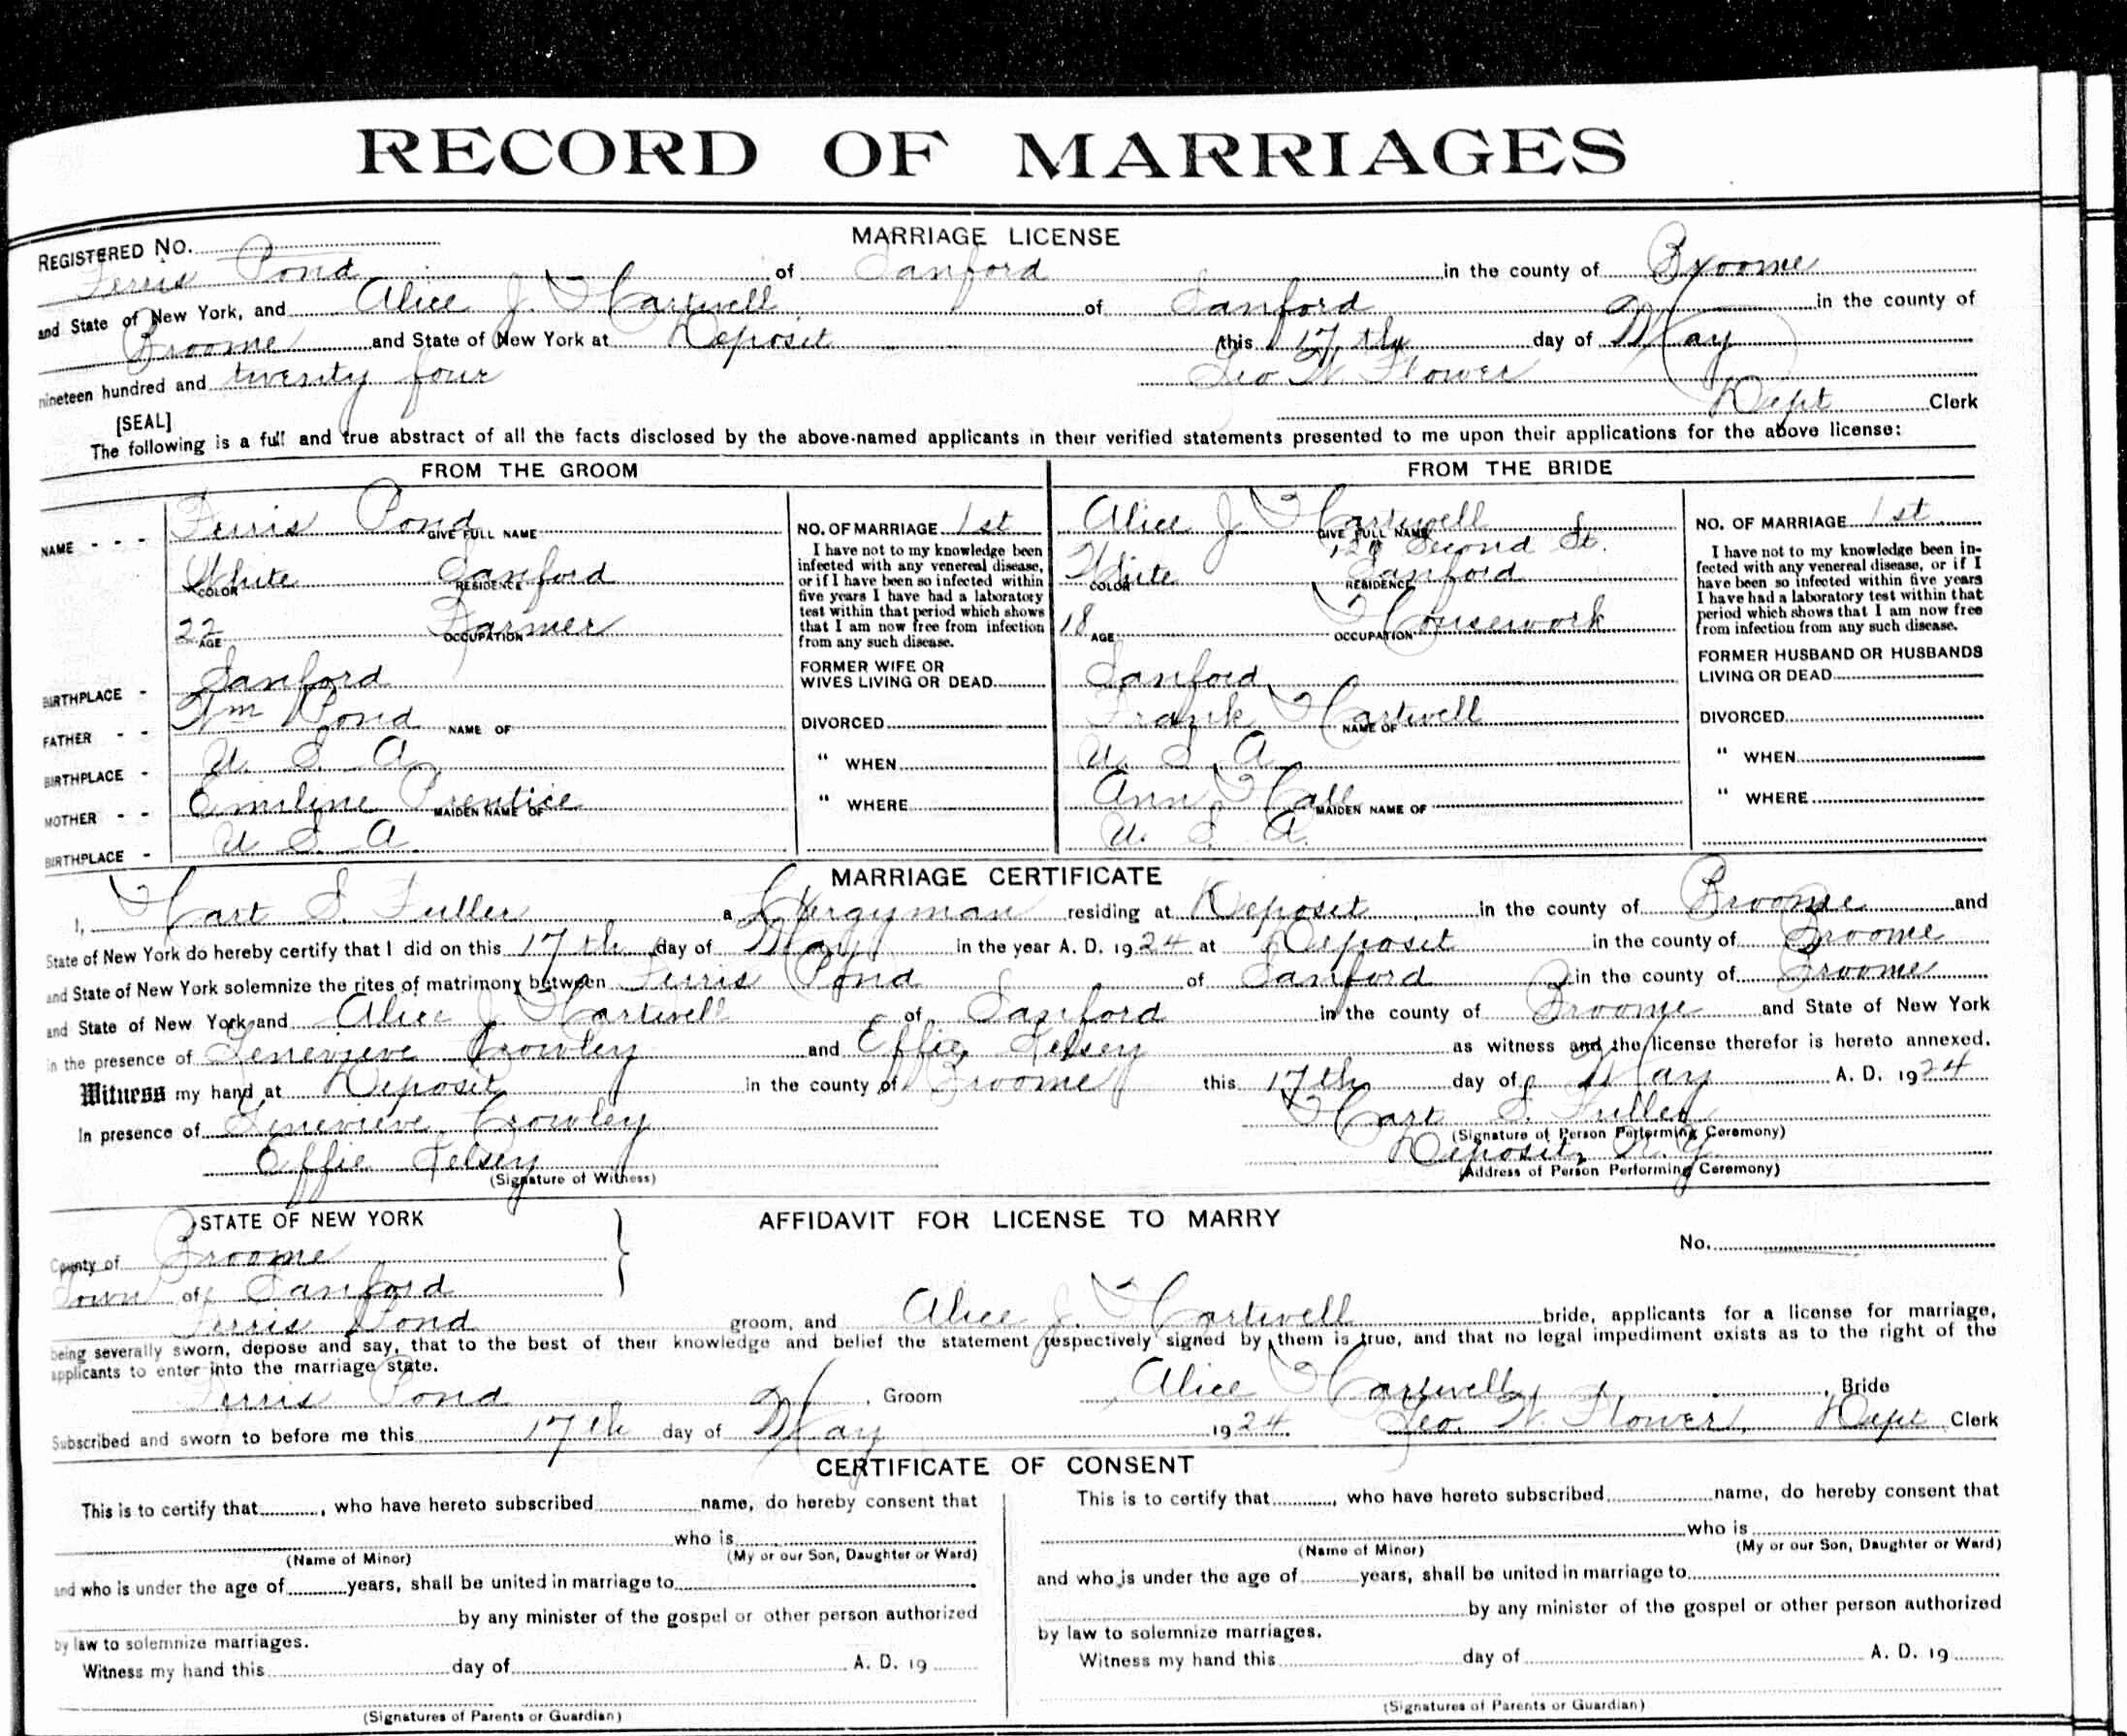 RECORD OF MARRIAGES
MARRIAGE LICENSE
REGISTERED No.
Ferris Pond of Sanford in the county of Broome
and State of New York, and Alice J. Hartwell of Sanford in the county of
Broome and State of New York at Deposit this 17th day of May
nineteen hundred and twenty four Geo W. Flower
[SEAL] Dept Clerk
The following is a full and true abstract of all the facts disclosed by the above-named applicants in their verified statements presented to me upon their applications for the above license:
FROM THE GROOM
NAME - - - Ferris Pond
GIVE FULL NAME
White Sanford
COLOR RESIDENCE
22 Farmer
AGE OCCUPATION
BIRTHPLACE - Sanford
FATHER - - Wm Pond NAME OF
BIRTHPLACE - U. S. A.
MOTHER - - Emilyne Prentice MAIDEN NAME OF
BIRTHPLACE - U S. A.
NO. OF MARRIAGE 1st
I have not to my knowledge been
infected with any venereal disease,
or if I have been so infected within
five years I have had a laboratory
test within that period which shows
that I am now free from infection
from any such disease.
FORMER WIFE OR
WIVES LIVING OR DEAD
DIVORCED
" WHEN
" WHERE
FROM THE BRIDE
Alice J Hartwell
GIVE FULL NAME
Second St.
White Sanford
COLOR RESIDENCE
18 Housework
AGE OCCUPATION
Sanford
Frank Hartwell
NAME OF
U. S. A.
Ann Hall
MAIDEN NAME OF
U. S. A.
NO. OF MARRIAGE 1st
I have not to my knowledge been in-
fected with any venereal disease, or if I
have been so infected within five years
I have had a laboratory test within that
period which shows that I am now free
from infection from any such disease.
FORMER HUSBAND OR HUSBANDS
LIVING OR DEAD
DIVORCED
" WHEN
" WHERE
MARRIAGE CERTIFICATE
I, Hart S. Fuller a Clergyman residing at Deposit, in the county of Broome and
State of New York do hereby certify that I did on this 17th day of May in the year A. D. 1924 at Deposit in the county of Broome
and State of New York solemnize the rites of matrimony between Ferris Pond of Sanford in the county of Broome
and State of New York and Alice J. Hartwell of Sanford in the county of Broome and State of New York
in the presence of Genevieve Crowley and Effie Kelsey as witness and the license therefor is hereto annexed.
Witness my hand at Deposit in the county of Broome this 17th day of May A. D. 1924
In presence of Genevieve Crowley Hart S. Fuller
(Signature of Person Performing Ceremony)
Effie Kelsey Deposit, N. Y.
(Signature of Witness) (Address of Person Performing Ceremony)
STATE OF NEW YORK
AFFIDAVIT FOR LICENSE TO MARRY
No.
County of Broome
Town of Sanford
Ferris Pond groom, and Alice J. Hartwell bride, applicants for a license for marriage,
being severally sworn, depose and say, that to the best of their knowledge and belief the statement respectively signed by them is true, and that no legal impediment exists as to the right of the
applicants to enter into the marriage state.
Ferris Pond, Groom Alice Hartwell, Bride
Subscribed and sworn to before me this 17th day of May 1924. Geo. W. Flower, Dept Clerk
CERTIFICATE OF CONSENT
This is to certify that , who have hereto subscribed name, do hereby consent that
who is
(Name of Minor) (My or our Son, Daughter or Ward)
and who is under the age of years, shall be united in marriage to
by any minister of the gospel or other person authorized
by law to solemnize marriages.
Witness my hand this day of A. D. 19
(Signatures of Parents or Guardian)
This is to certify that , who have hereto subscribed name, do hereby consent that
who is
(Name of Minor) (My or our Son, Daughter or Ward)
and who is under the age of years, shall be united in marriage to
by any minister of the gospel or other person authorized
by law to solemnize marriages.
Witness my hand this day of A. D. 19
(Signatures of Parents or Guardian)